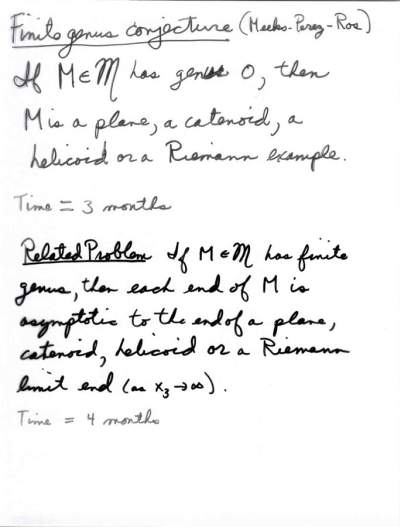 Finite genus conjecture (Meeks-Perez-Ros)
If M ∈ M has genus 0, then
M is a plane, a catenoid, a
helicoid or a Riemann example.
Time = 3 months
Related Problem If M ∈ M has finite
genus, then each end of M is
asymptotic to the end of a plane,
catenoid, helicoid or a Riemann
limit end (as x₃ → ∞).
Time = 4 months